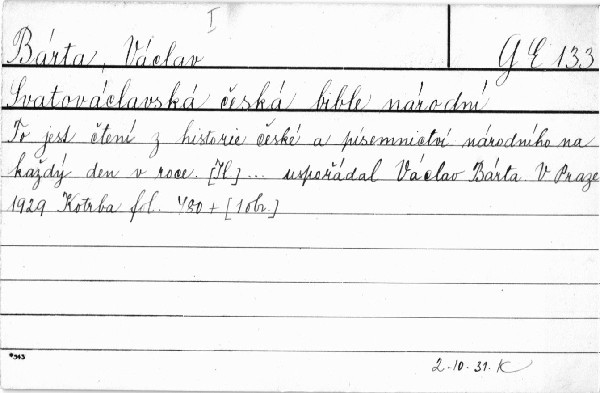 I
Bárta, Václav GE 133
Svatováclavská česká bible národní
To jest čtení z historie české a písemnictví národního na
každý den v roce. [II] ... uspořádal Václav Bárta. V Praze
1929 Kotrba fol. 480 + [1 obr.]
*943
2.10.31. K